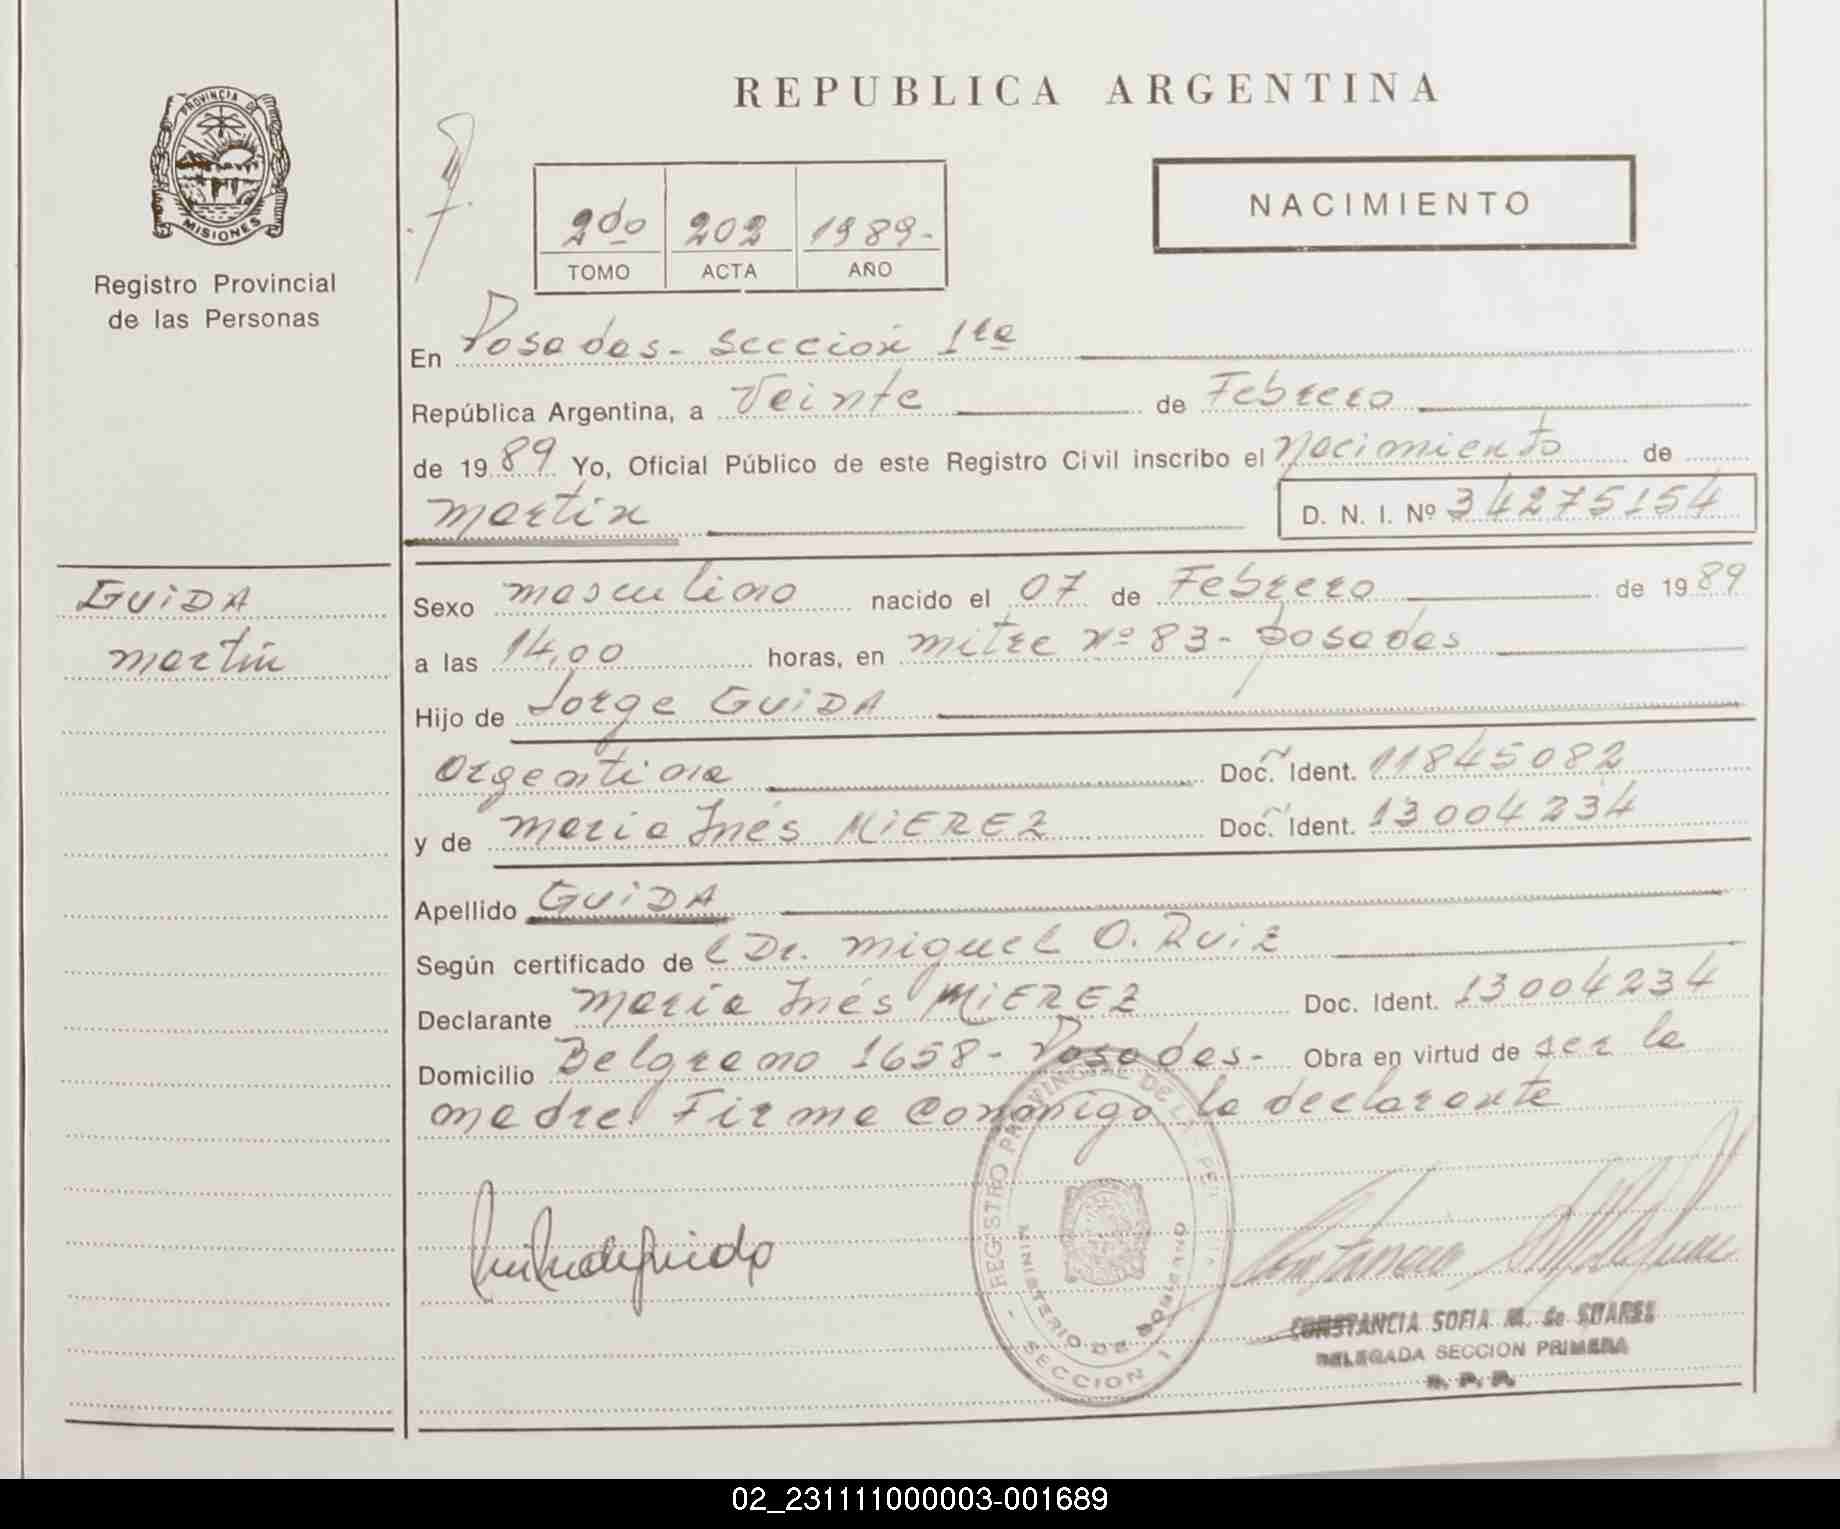 REPUBLICA ARGENTINA
PROVINCIA DE
MISIONES
Registro Provincial
de las Personas
2do 202 1989-
TOMO ACTA AÑO
NACIMIENTO
En Posadas- Sección 1ra
República Argentina, a Veinte de Febrero
de 1989 Yo, Oficial Público de este Registro Civil inscribo el Nacimiento de
Martin D. N. I. Nº 34275154
GUIDA
Martin
Sexo masculino nacido el 07 de Febrero de 1989
a las 14,00 horas, en mitre Nº 83- posadas
Hijo de Jorge GUIDA
Argentina Doc. Ident. 11845082
y de Maria Inés MIEREZ Doc. Ident. 13004234
Apellido GUIDA
Según certificado de l Dr. Miguel O. Ruiz
Declarante Maria Inés MIEREZ Doc. Ident. 13004234
Domicilio Belgrano 1658- Posadas- Obra en virtud de ser la
madre. Firma conmigo la declarante
REGISTRO PROVINCIAL DE LAS PER
MINISTERIO DE GOBIERNO
- SECCION 1
CONSTANCIA SOFIA M. de SUAREZ
DELEGADA SECCION PRIMERA
R. P. P.
02_231111000003-001689